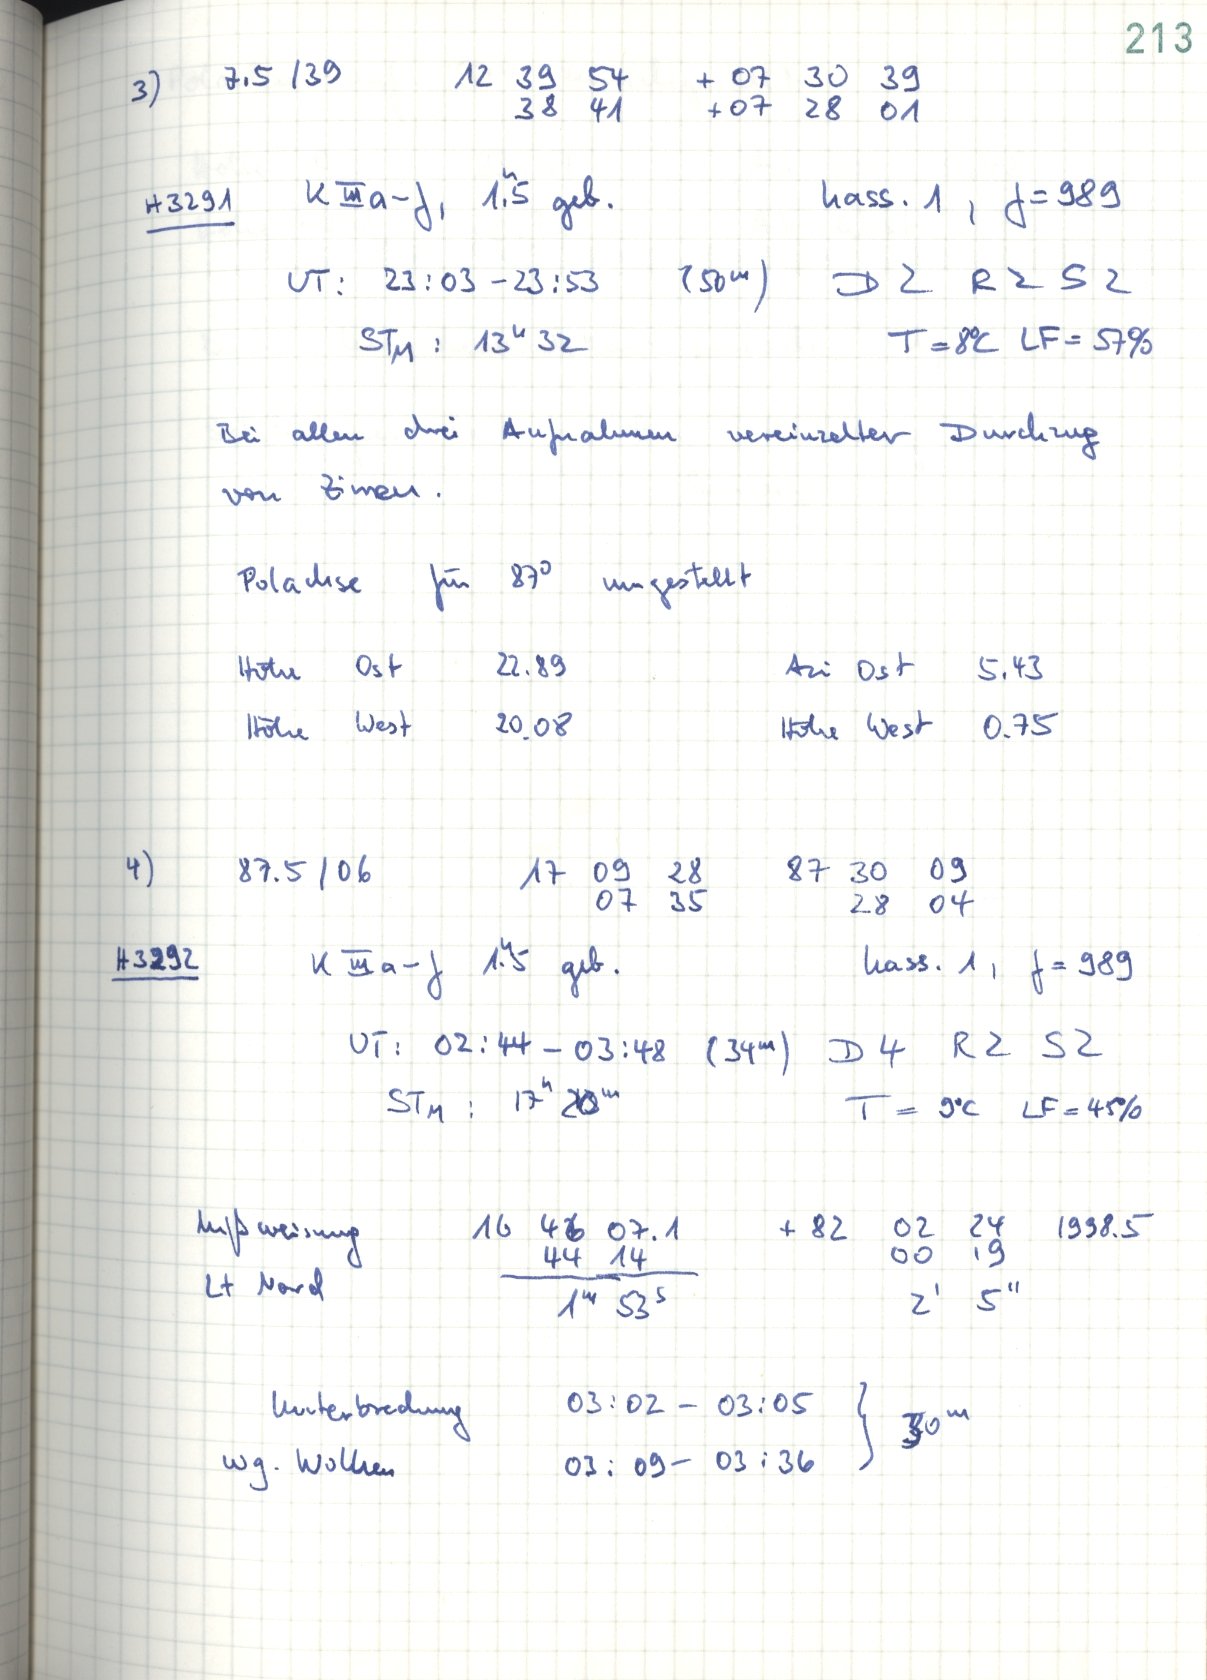 213
3) 7.5 /39 12 39 54 + 07 30 39
38 41 +07 28 01
H3291 K IIIa-J, 1.ʰ5 geb. Kass. 1, f=989
UT: 23:03 - 23:53 (50ᵐ) D2 R2 S2
STM: 13ʰ32 T=8°C LF=57%
Bei allen drei Aufnahmen vereinzelter Durchzug
von Zirren.
Polachse für 87° umgestellt
Höhe Ost 22.89 Azi Ost 5.43
Höhe West 20.08 Höhe West 0.75
4) 87.5 / 06 17 09 28 87 30 09
07 35 28 04
H3292 K IIIa-J 1.ʰ5 geb. Kass. 1, f=989
UT: 02:44 - 03:48 (34ᵐ) D4 R2 S2
STM: 17ʰ 20ᵐ T = 9°C LF=45%
Mißweisung 16 46 07.1 + 82 02 24 1998.5
44 14 00 19
Lt Nord 1ᵐ 53ˢ 2' 5"
Unterbrechung 03:02 - 03:05 } 30ᵐ
wg. Wolken 03:09 - 03:36